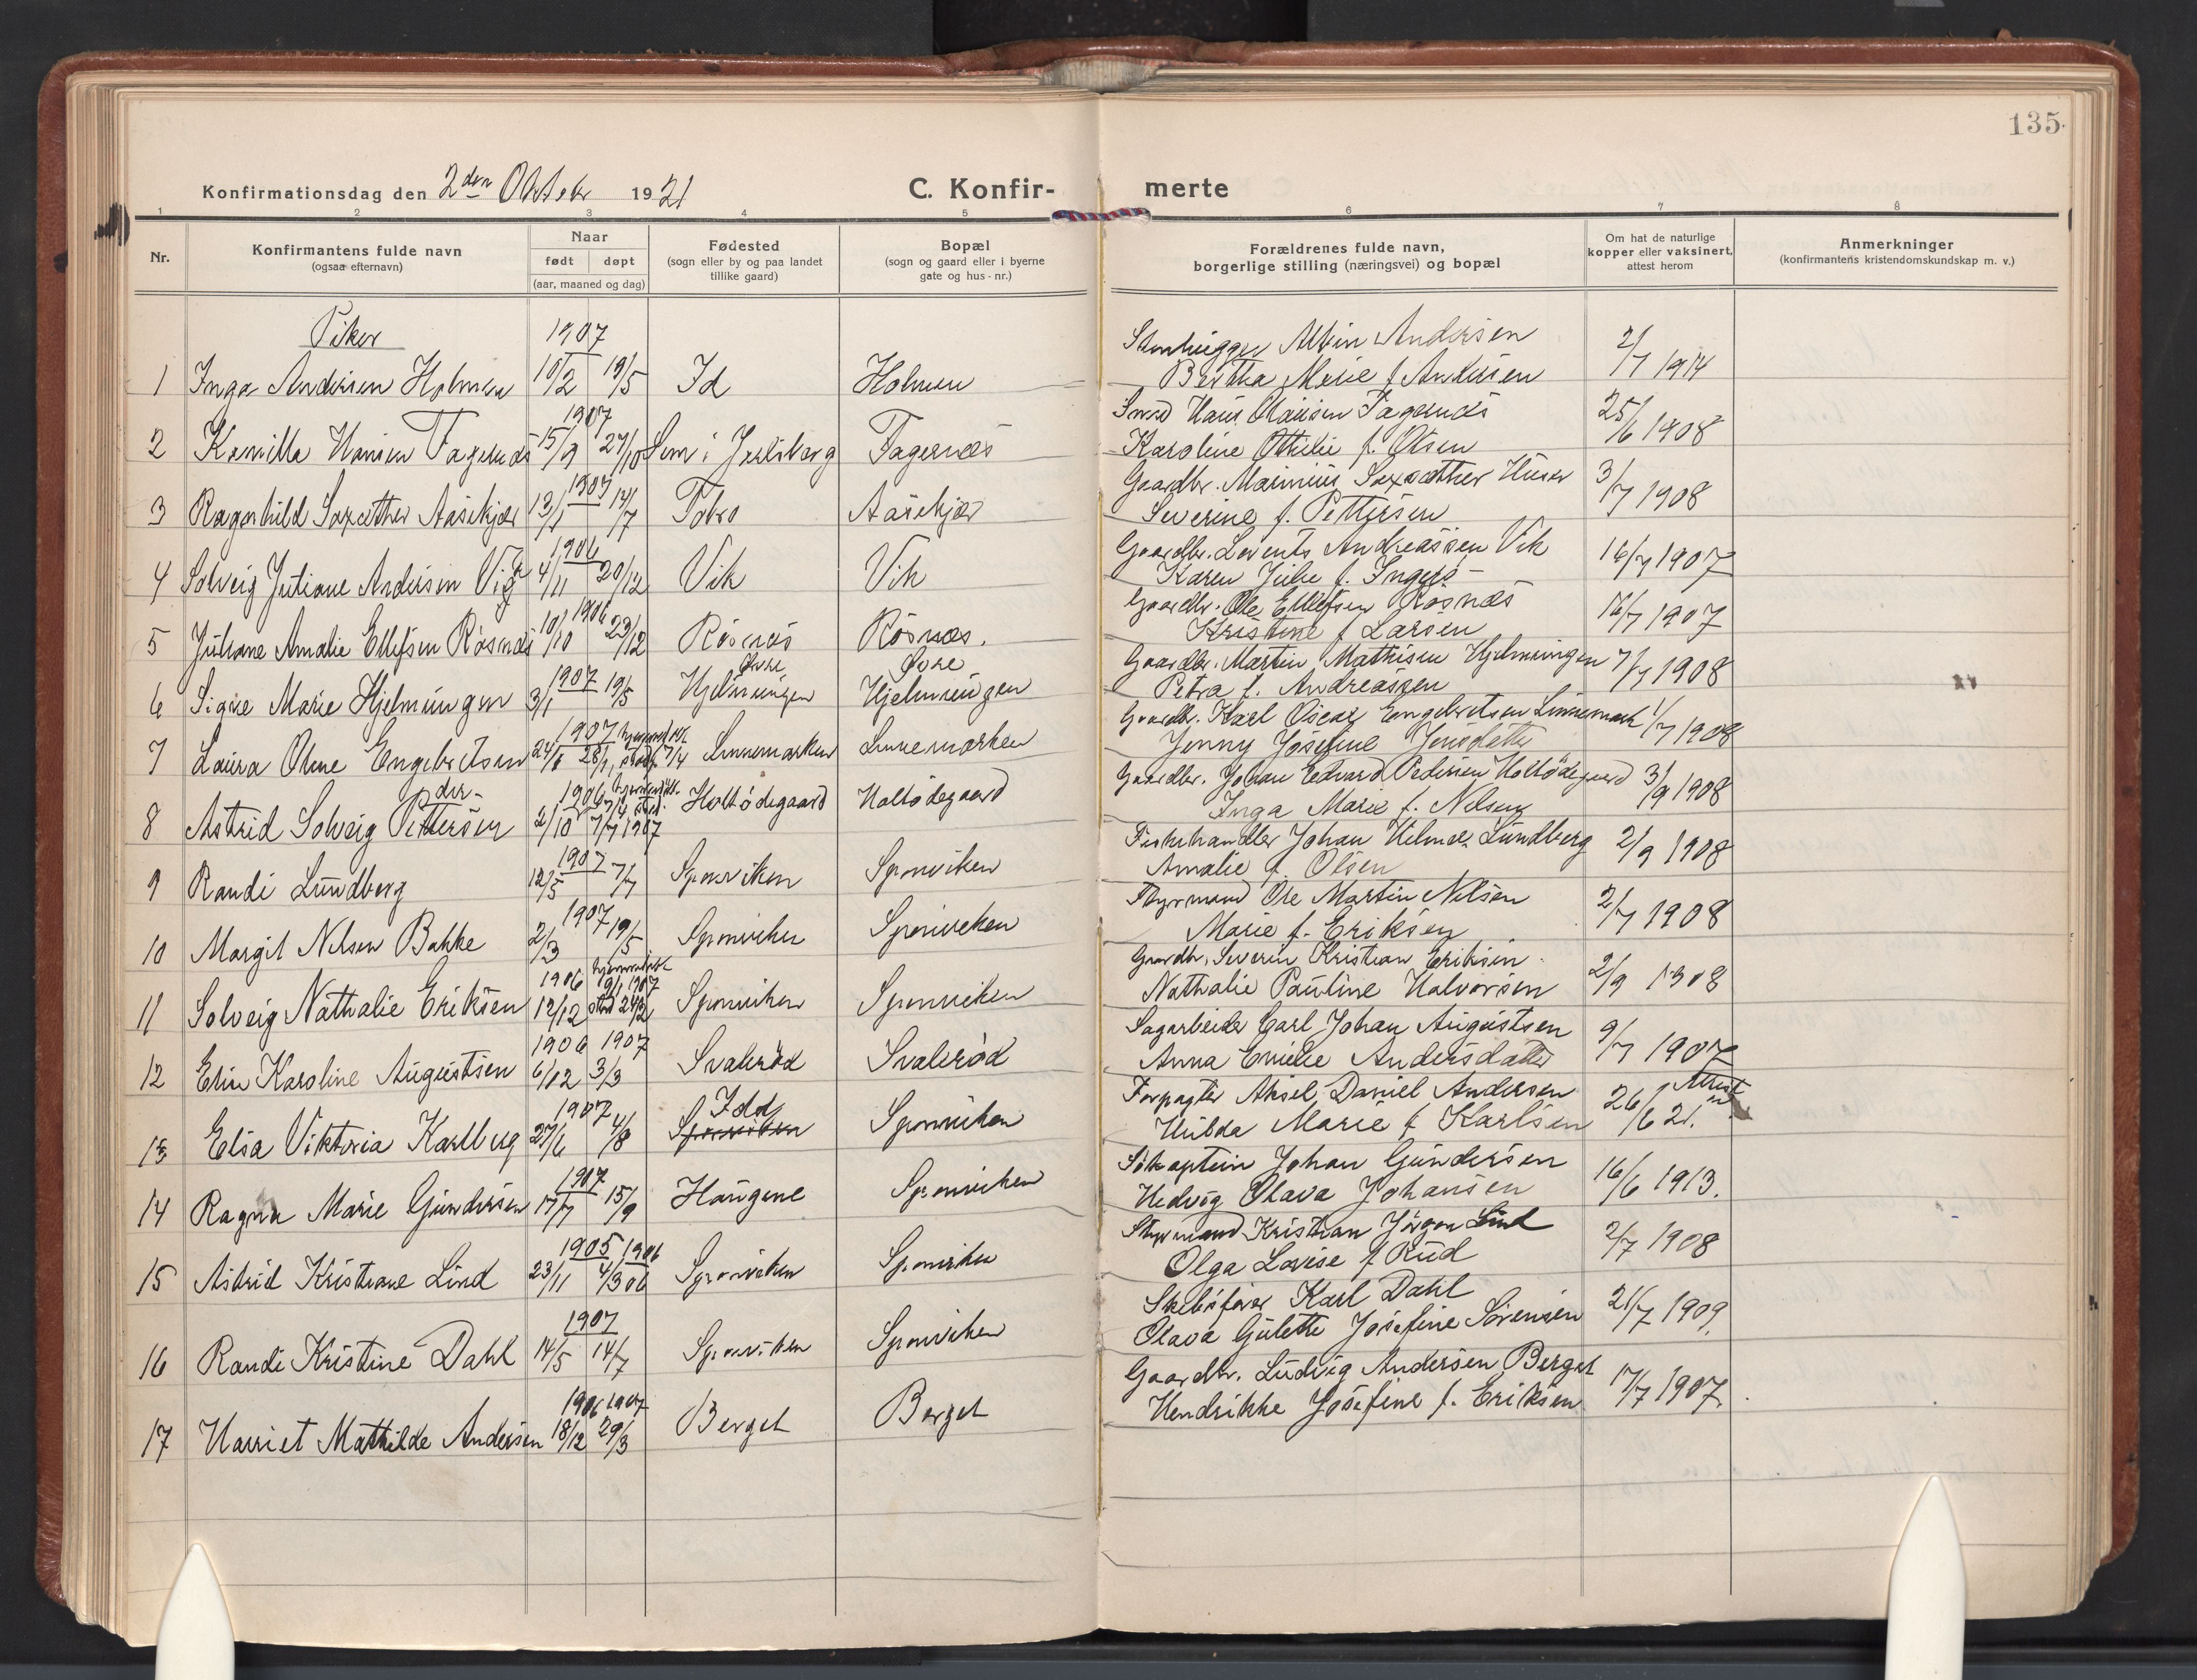 135.
Konfirmationsdag den 2den Oktobr 1921
C. Konfir-
merte
1 2 3 4 5 6 7 8
Nr.
Konfirmantens fulde navn
(ogsaa efternavn)
Naar
født døpt
(aar, maaned og dag)
Fødested
(sogn eller by og paa landet
tillike gaard)
Bopæl
(sogn og gaard eller i byerne
gate og hus - nr.)
Forældrenes fulde navn,
borgerlige stilling (næringsvei) og bopæl
Om hat de naturlige
kopper eller vaksinert,
attest herom
Anmerkninger
(konfirmantens kristendomskundskap m. v.)
Piker 1907
Stenhugger Albin Andersen 2/7 1914
1 Inga Andersen Holmen 10/2 19/5 Id Holmen
Bertha Marie f Andersen
1907
Smed Hans Hansen Fagernæs 25/6 1908
2 Kamilla Hansen Fagernæs 15/9 27/10 Sem i Jarlsberg Fagernæs
Karoline Othilie f. Olsen
1907
Gaardbr. Marinius Saxæther Huser 3/7 1908
3 Ragnhild Saxæther Aasekjær 13/1 14/7 Aasekjær
Severine f. Pettersen
1906
Gaardbr. Lorents Andreassen Vik 16/7 1907
4 Solveig Juliane Andersen Vig 4/11 20/12 Vik Vik
Karen Julie f. Ingers-
1906
Gaardbr. Ole Ellefsen Røsnæs 16/7 1907
5 Juliane Amalie Ellefsen Røsnæs 10/10 23/12 Røsnæs Røsnæs.
Kristine f Larsen
1907
Gaardbr. Martin Mathisen Hjelmungen 7/7 1908
6 Signe Marie Hjelmungen 3/1 19/5 Hjelmungen Hjelmungen
Petra f. Andreassen
1907 hjemmed.
Gaardbr. Karl Oscar Engebretsen Linnemark 1/7 1908
7 Laura Oline Engebretsen 24/1 28/1, stadf. 7/4 Linnemarken Linnemarken
Jenny Josefine Jensdatter
der-
1906
Gaardbr. Johan Edvard Pedersen Holtødegaard 3/9 1908
8 Astrid Solveig Pettersen 2/10 7/7 1907 Holtødegaard Holtødegaard
Inga Marie f. Nilsen
1907
Fiskehandler Johan Hilmar Lundberg 2/9 1908
9 Randi Lundberg 12/5 7/7 Sponviken Sponviken
Amalie f. Olsen
1907
Styrmand Ole Martin Nilsen 2/7 1908
10 Margit Nilsen Bakke 2/3 19/5 Sponviken Sponviken
Marie f. Eriksen
1906 1907
Gaardbr. Severin Kristian Eriksen 2/9 1908
11 Solveig Nathalie Eriksen 12/12 stad 24/2 Sponviken Sponviken
Nathalie Pauline Halvorsen
1906 1907
Sagarbeider Carl Johan Augustsen 9/7 1907
12 Elin Karoline Augustsen 6/12 3/3 Svalerød Svalerød
Anna Emilie Andersdatter
1907 Idd
Forpagter Aksel Daniel Andersen 26/6 21. Attest
13 Elsa Viktoria Karlberg 27/6 4/8 Sponviken Sponviken
Hulda Marie f Karlsen
1907
Skaptein Johan Gundersen 16/6 1913.
14 Ragna Marie Gundersen 17/7 15/9 Haugene Sponviken
Hedvig Olava Johansen
1905 1906
Styrmand Kristian Jørgen Lind 2/7 1908
15 Astrid Kristiane Lind 23/11 4/3 06 Sponviken Sponviken
Olga Lovise f Rud
1907
Skibsfører Karl Dahl 21/7 1909.
16 Randi Kristine Dahl 14/5 14/7 Sponviken Sponviken
Olava Gulette Josefine Sørensen
1906 1907
Gaardbr. Ludvig Andersen Berget 17/7 1907
17 Harriet Mathilde Andersen 18/12 29/3 Berget Berget
Hendrikke Josefine f. Eriksen